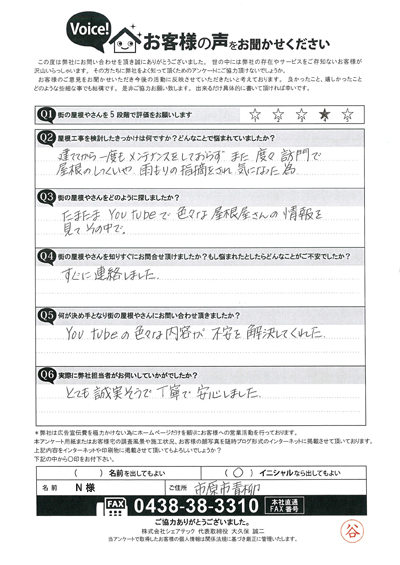 Voice! お客様の声をお聞かせください
この度は弊社にお問い合わせを頂き誠にありがとうございました。世の中には弊社の存在やサービスをご存知ないお客様が
沢山いらっしゃいます。その方たちに弊社をよく知って頂くためのアンケートにご協力頂けないでしょうか。
お客様のご意見をお聞かせいただき今後の活動に反映させていただきたいと考えております。良かったこと、嬉しかったこと
どのような些細な事でも結構です。是非ご協力お願い致します。出来るだけ具体的に書いて頂ければ幸いです。
Q1 街の屋根やさんを5段階で評価をお願いします ☆ ☆ ☆ ★ ☆
Q2 屋根工事を検討したきっかけは何ですか?どんなことで悩まれていましたか?
建ててから一度もメンテナンスをしておらず また 度々 訪問で
屋根のしっくいや 雨もりの指摘をされ 気になった為
Q3 街の屋根やさんをどのように探しましたか?
たまたま You tubeで 色々な 屋根屋さんの 情報を
見て その中で。
Q4 街の屋根やさんを知りすぐにお問合せ頂けましたか?もし悩まれたとしたらどんなことがご不安でしたか?
すぐに 連絡しました.
Q5 何が決め手となり街の屋根やさんにお問い合わせ頂きましたか?
You tubeの色々な内容が 不安を 解決してくれた.
Q6 実際に弊社担当者がお伺いしていかがでしたか?
とても 誠実そうで 丁寧で 安心しました.
*弊社は広告宣伝費を極力かけない為にホームページだけを頼りにお客様への営業活動を行っております。
本アンケート用紙またはお客様宅の調査風景や施工状況、お客様の顔写真を随時ブログ形式のインターネットに掲載させて頂いております。
上記内容をインターネットや印刷物に掲載させて頂いてもよろしいでしょうか?
下記の中から○印をお付け下さい。
( ) 名前を出してもよい ( ○ ) イニシャルなら出してもよい
名前 N 様 ご住所 市原市青柳
FAX 0438-38-3310 本社直通 FAX番号
ご協力ありがとうございました。
株式会社シェアテック 代表取締役 大久保 誠二
当アンケートで取得したお客様の個人情報は関係法規に基づき厳正に管理いたします。
谷